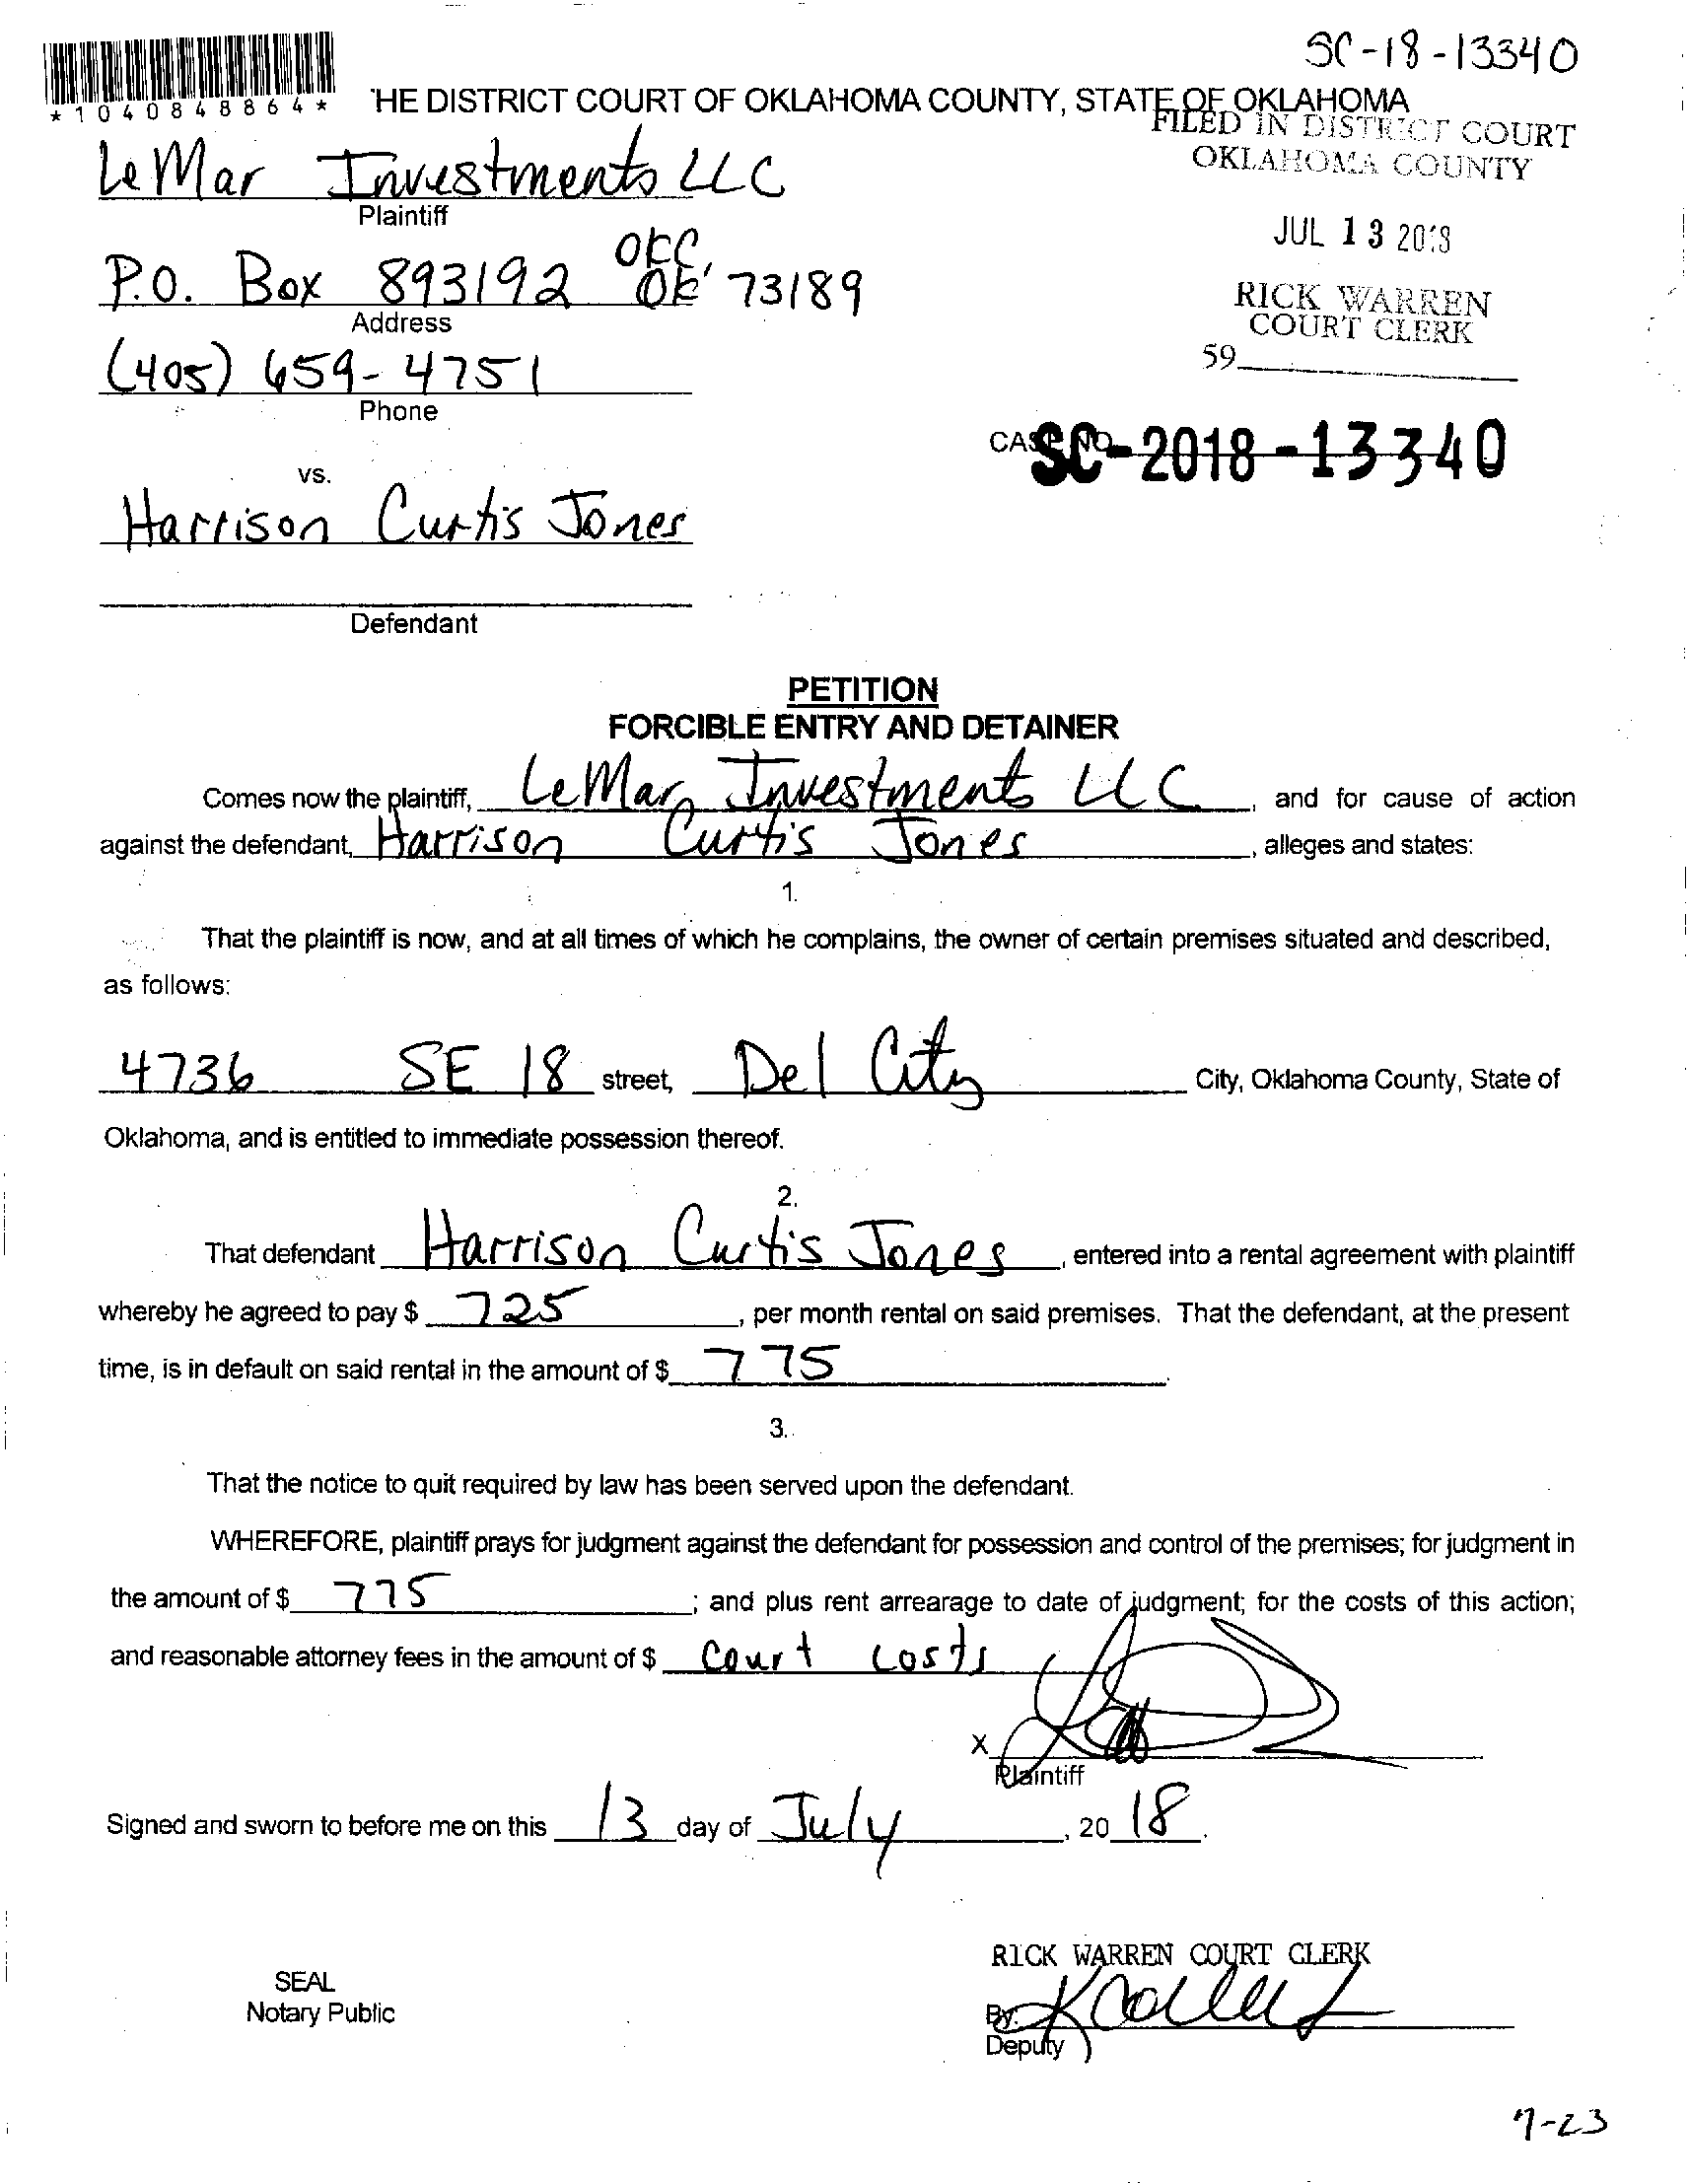 SC-18-13340
*1040848864*
'HE DISTRICT COURT OF OKLAHOMA COUNTY, STATE OF OKLAHOMA
FILED IN DISTRICT COURT
OKLAHOMA COUNTY
JUL 13 2018
RICK WARREN
COURT CLERK
59
LeMar Investments LLC
Plaintiff
P.O. Box 893192 OKC, OK 73189
Address
(405) 659-4751
Phone
CASE NO.
SC-2018-13340
vs.
Harrison Curtis Jones
Defendant
PETITION
FORCIBLE ENTRY AND DETAINER
Comes now the plaintiff, LeMar Investments LLC, and for cause of action
against the defendant, Harrison Curtis Jones, alleges and states:
1.
That the plaintiff is now, and at all times of which he complains, the owner of certain premises situated and described,
as follows:
4736 SE 18 street, Del City City, Oklahoma County, State of
Oklahoma, and is entitled to immediate possession thereof.
2.
That defendant Harrison Curtis Jones, entered into a rental agreement with plaintiff
whereby he agreed to pay $ 725, per month rental on said premises. That the defendant, at the present
time, is in default on said rental in the amount of $ 775.
3.
That the notice to quit required by law has been served upon the defendant.
WHEREFORE, plaintiff prays for judgment against the defendant for possession and control of the premises; for judgment in
the amount of $ 775; and plus rent arrearage to date of judgment; for the costs of this action;
and reasonable attorney fees in the amount of $ Court Costs
X
Plaintiff
Signed and sworn to before me on this 13 day of July, 20 18.
RICK WARREN COURT CLERK
SEAL
Notary Public
By:
Deputy
7-23